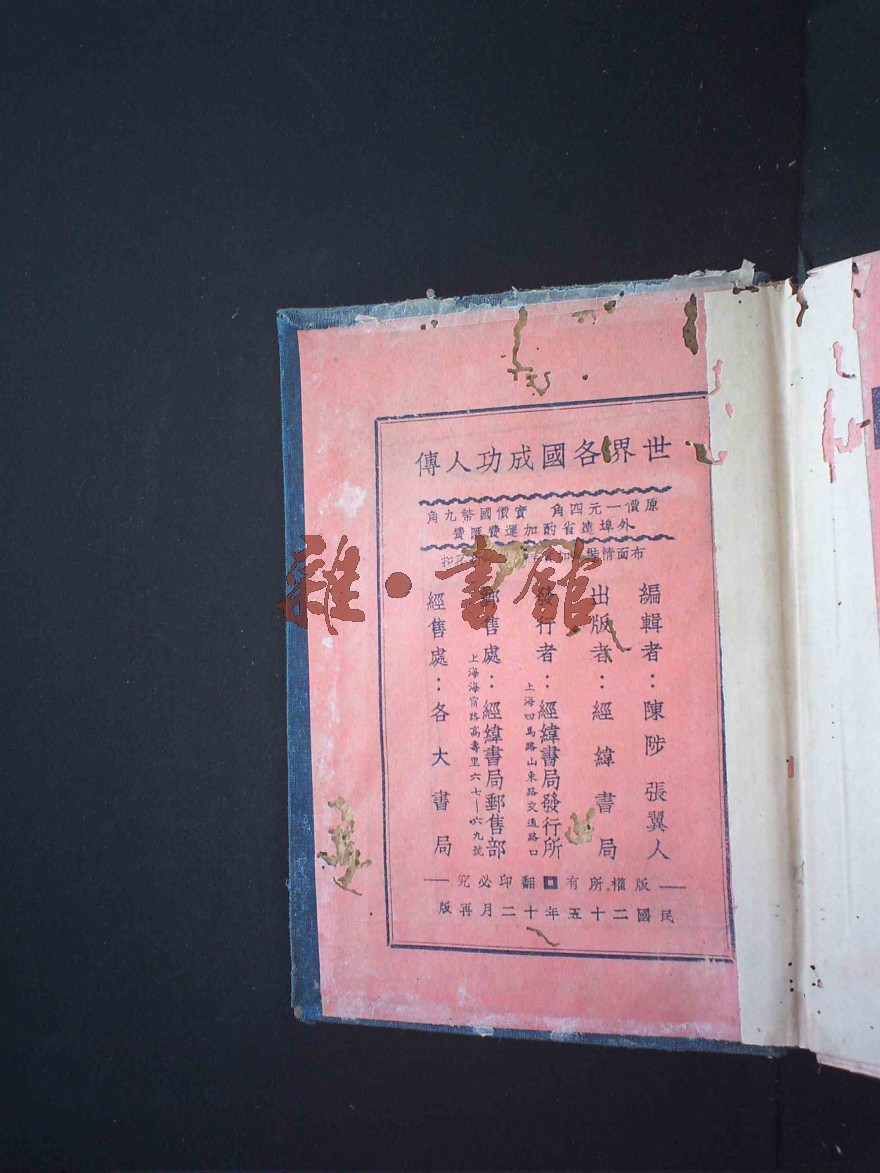 世界各國成功人傳
原價一元四角 實價國幣九角
外埠遠省酌加運費匯費
布面精裝加
扣
編輯者：陳陟 張翼人
出版者：經緯書局
發行者：經緯書局發行所
上海四馬路山東路交通路口
郵售處：經緯書局郵售部
上海海甯路高壽里六七—六九號
經售處：各大書局
版權所有 翻印必究
民國二十五年十二月再版
雜·書館